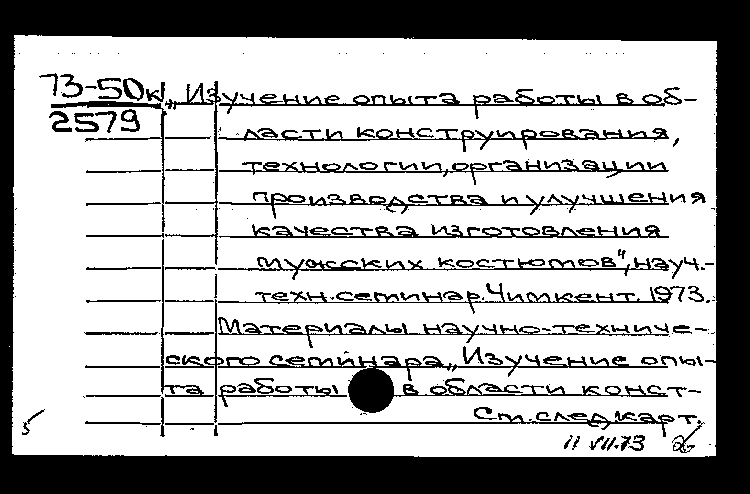 73-50к
2579
„Изучение опыта работы в об-
ласти конструирования,
технологии, организации
производства и улучшения
качества изготовления
мужских костюмов", науч.-
техн. семинар. Чимкент. 1973.
Материалы научно-техниче-
ского семинара „Изучение опы-
та работы в области конст-
См. след. карт.
5
11 VII.73